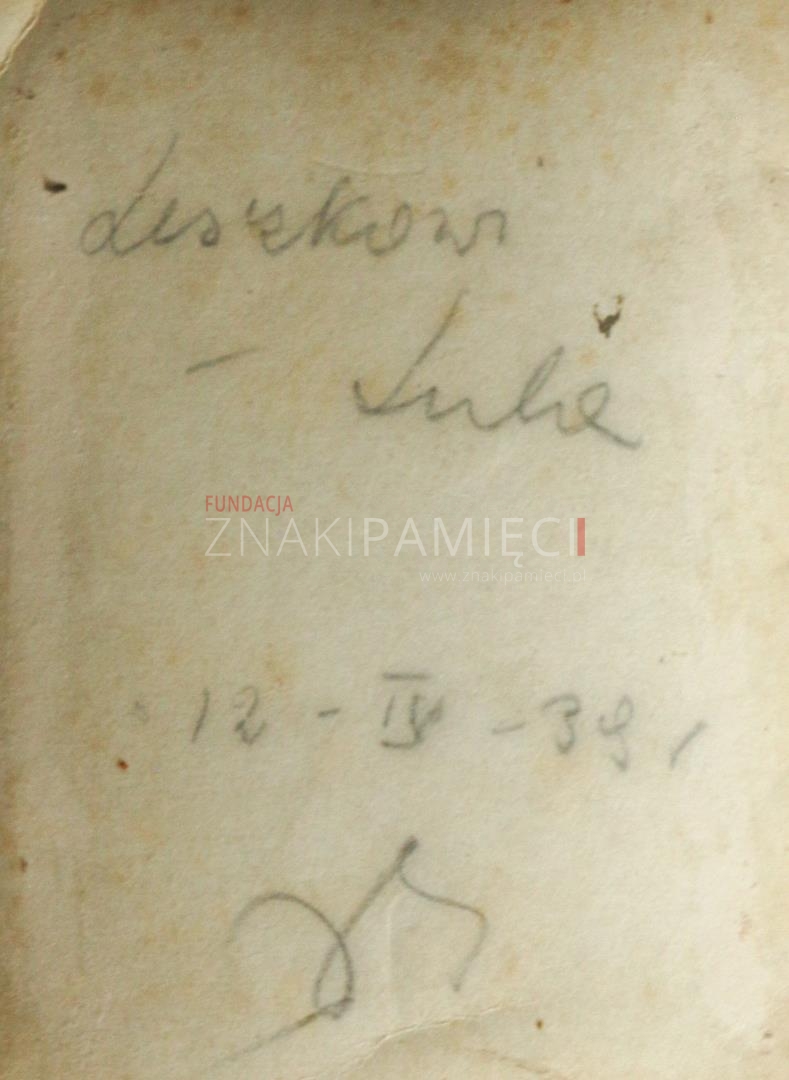 Leszkowi
— Luba
FUNDACJA
ZNAKIPAMIĘCI
www.znakipamieci.pl
12 - IV - 39 r